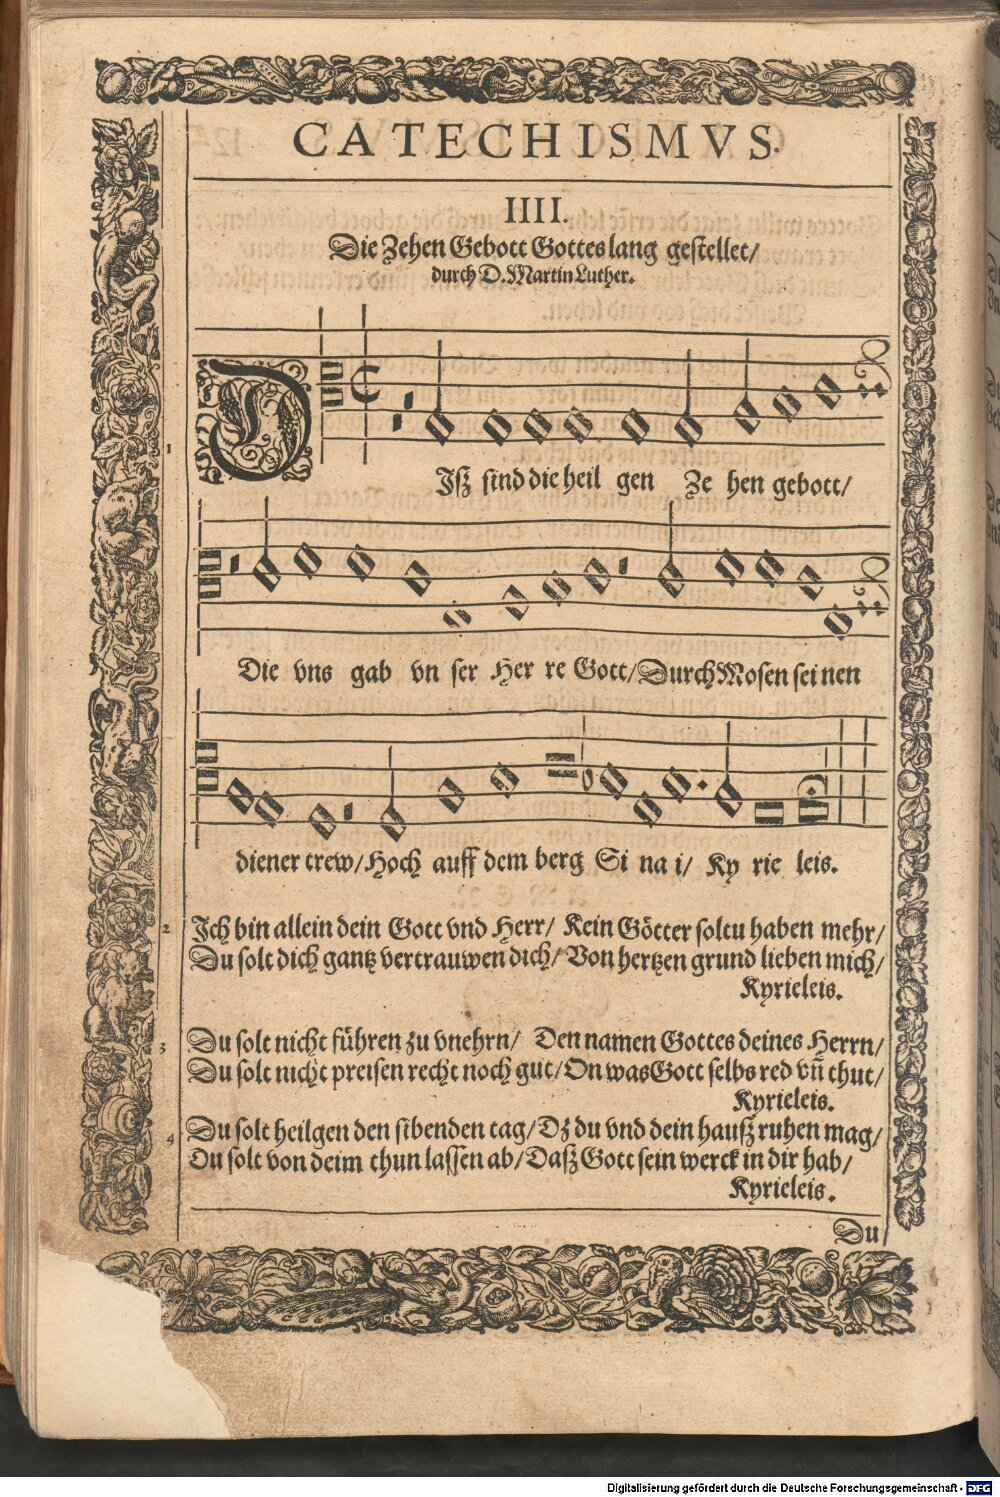 CATECHISMVS.
IIII.
Die Zehen Gebott Gottes lang gestellet/
durch D. Martin Luther.
1
DIsz sind die heil gen Ze hen gebott/
Die vns gab vn ser Her re Gott/ Durch Mosen sei nen
diener trew/ Hoch auff dem berg Si na i/ Ky rie leis.
2 Ich bin allein dein Gott vnd Herr/ Kein Götter soltu haben mehr/
Du solt dich gantz vertrauwen dich/ Von hertzen grund lieben mich/
Kyrieleis.
3 Du solt nicht führen zu vnehrn/ Den namen Gottes deines Herrn/
Du solt nicht preisen recht noch gut/ On was Gott selbs red vñ thut/
Kyrieleis.
4 Du solt heilgen den sibenden tag/ Dz du vnd dein hausz ruhen mag/
Du solt von deim thun lassen ab/ Dasz Gott sein werck in dir hab/
Kyrieleis.
Du
Digitalisierung gefördert durch die Deutsche Forschungsgemeinschaft - DFG